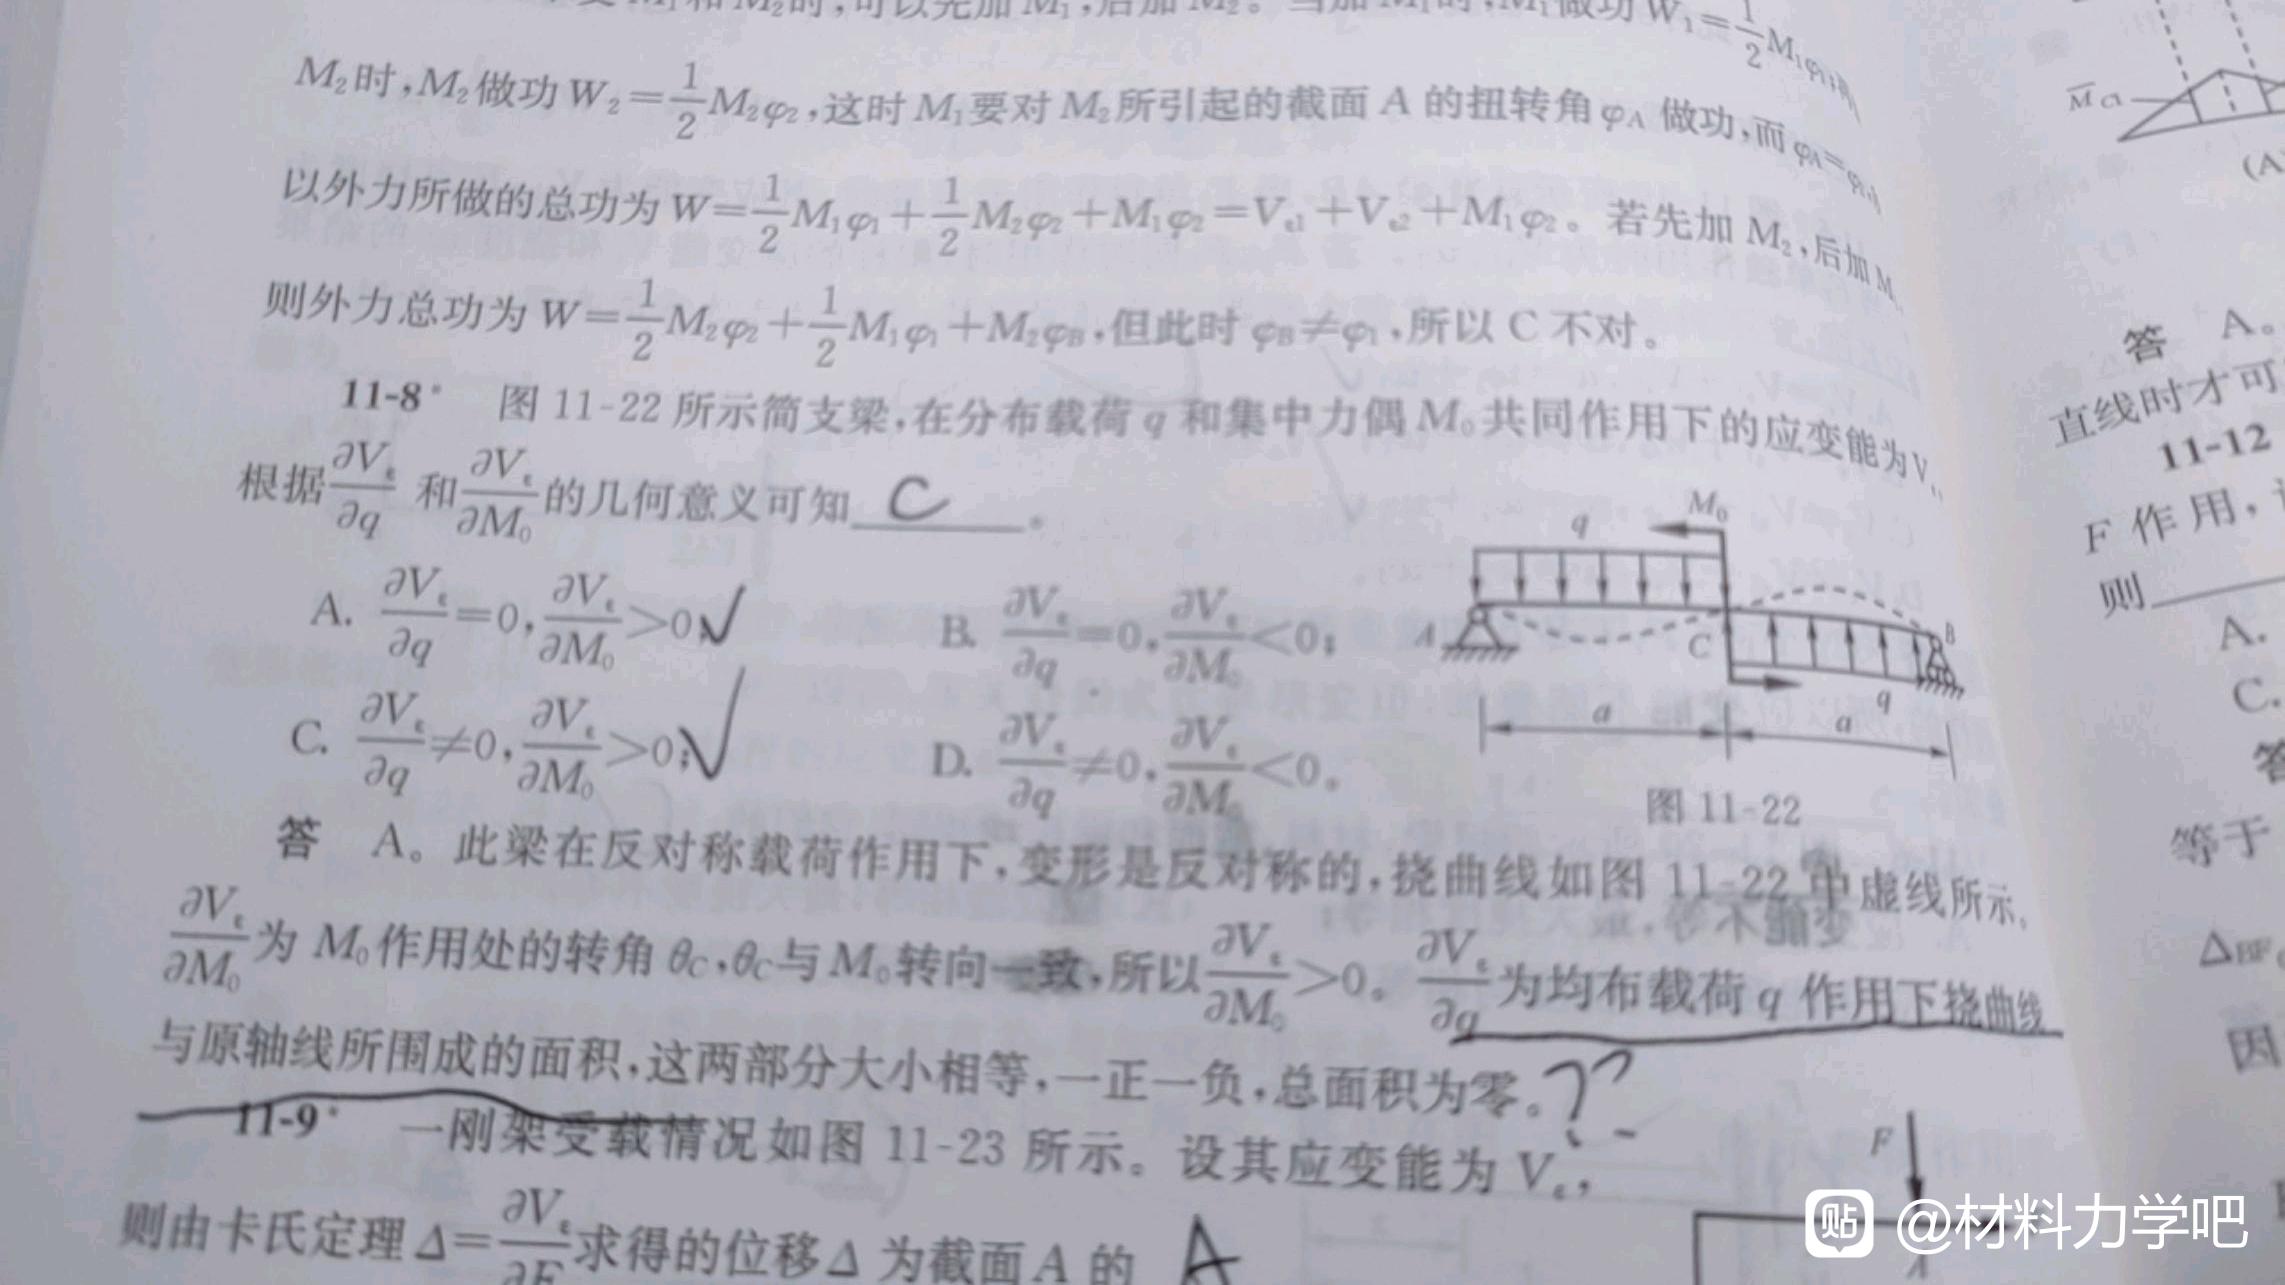 时,可以先加 M₁,后加 M₂。当加 M₁时,M₁做功 W₁=1/2M₁φ₁;
M₂时,M₂做功 W₂=1/2M₂φ₂,这时 M₁要对 M₂所引起的截面 A 的扭转角 φA 做功,而 φA=φ₂,
以外力所做的总功为 W=1/2M₁φ₁+1/2M₂φ₂+M₁φ₂=Vε1+Vε2+M₁φ₂。若先加 M₂,后加 M
则外力总功为 W=1/2M₂φ₂+1/2M₁φ₁+M₂φB,但此时 φB≠φ₁,所以 C 不对。
11-8* 图 11-22 所示简支梁,在分布载荷 q 和集中力偶 M₀共同作用下的应变能为Vε,
根据∂Vε/∂q 和∂Vε/∂M₀的几何意义可知 C 。
A. ∂Vε/∂q=0,∂Vε/∂M₀>0;√
B. ∂Vε/∂q=0,∂Vε/∂M₀<0;
C. ∂Vε/∂q≠0,∂Vε/∂M₀>0;√
D. ∂Vε/∂q≠0,∂Vε/∂M₀<0。
q
M₀
A
C
B
q
a
a
图 11-22
答 A。此梁在反对称载荷作用下,变形是反对称的,挠曲线如图 11-22 中虚线所示。
∂Vε/∂M₀为 M₀作用处的转角 θC,θC与 M₀转向一致,所以∂Vε/∂M₀>0。∂Vε/∂q为均布载荷 q 作用下挠曲线
与原轴线所围成的面积,这两部分大小相等,一正一负,总面积为零。??
11-9* 一刚架受载情况如图 11-23 所示。设其应变能为 Vε,
则由卡氏定理 Δ=∂Vε/∂F求得的位移Δ 为截面 A 的 A
F
A
M̄C1
(A
答 A。
直线时才可
11-12
F 作用,
则
A.
C.
答
等于
ΔBF
因
贴 @材料力学吧